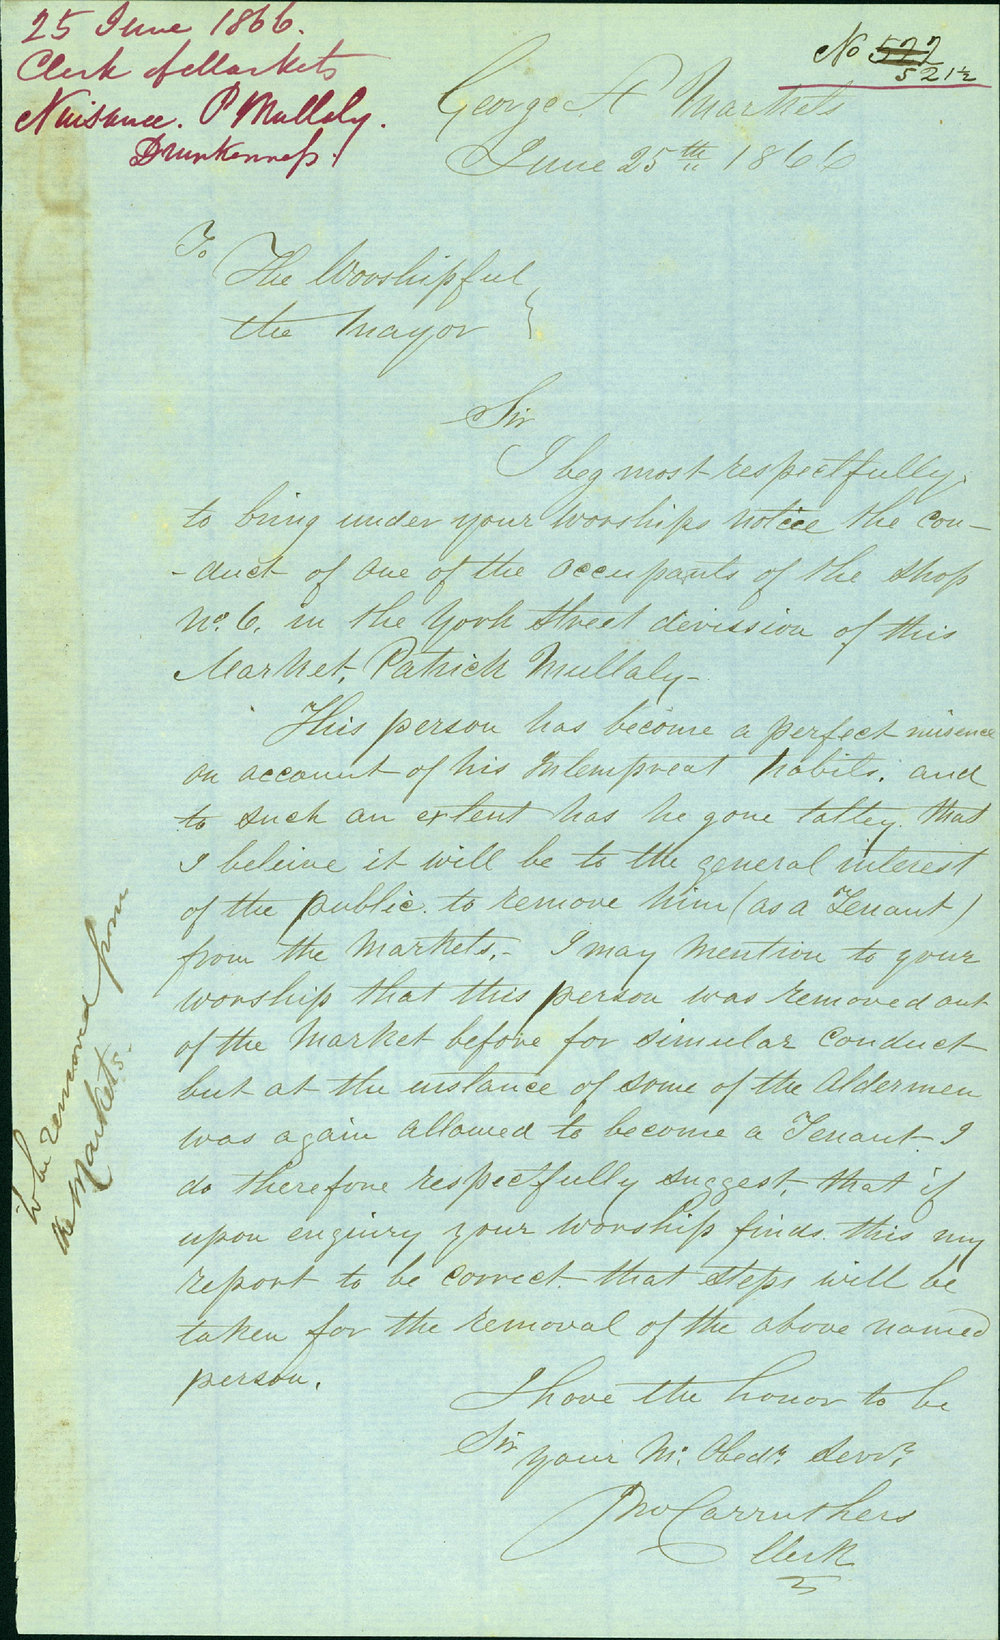 25 June 1866.
Clerk of Markets
Nuisance. P Mullaly.
Drunkenness.
No 522
521½
George St Markets
June 25th 1866
To
The Worshipful
the Mayor
Sir
I beg most respectfully
to bring under your Worships notice the con-
-duct of one of the occupants of the shop
No. 6. in the York Street devission of this
Market, Patrick Mullaly-
This person has become a perfect nuisence
on account of his Intempreat habits. and
to such an extent has he gone latley that
I beleive it will be to the general interest
of the public. to remove him (as a Tenant)
from the Markets,- I may mention to your
worship that this person was removed out
of the Market before for simular conduct
but at the instance of some of the Aldermen
was again allowed to become a Tenant I
do therefore respectfully suggest, that if
upon enquiry your Worship finds this my
report to be correct that steps will be
taken for the removal of the above named
person.
I have the honor to be
Sir
your Mt. Obedt. Servt.
Jno Carruthers
Clerk
To be removed from
the Markets.